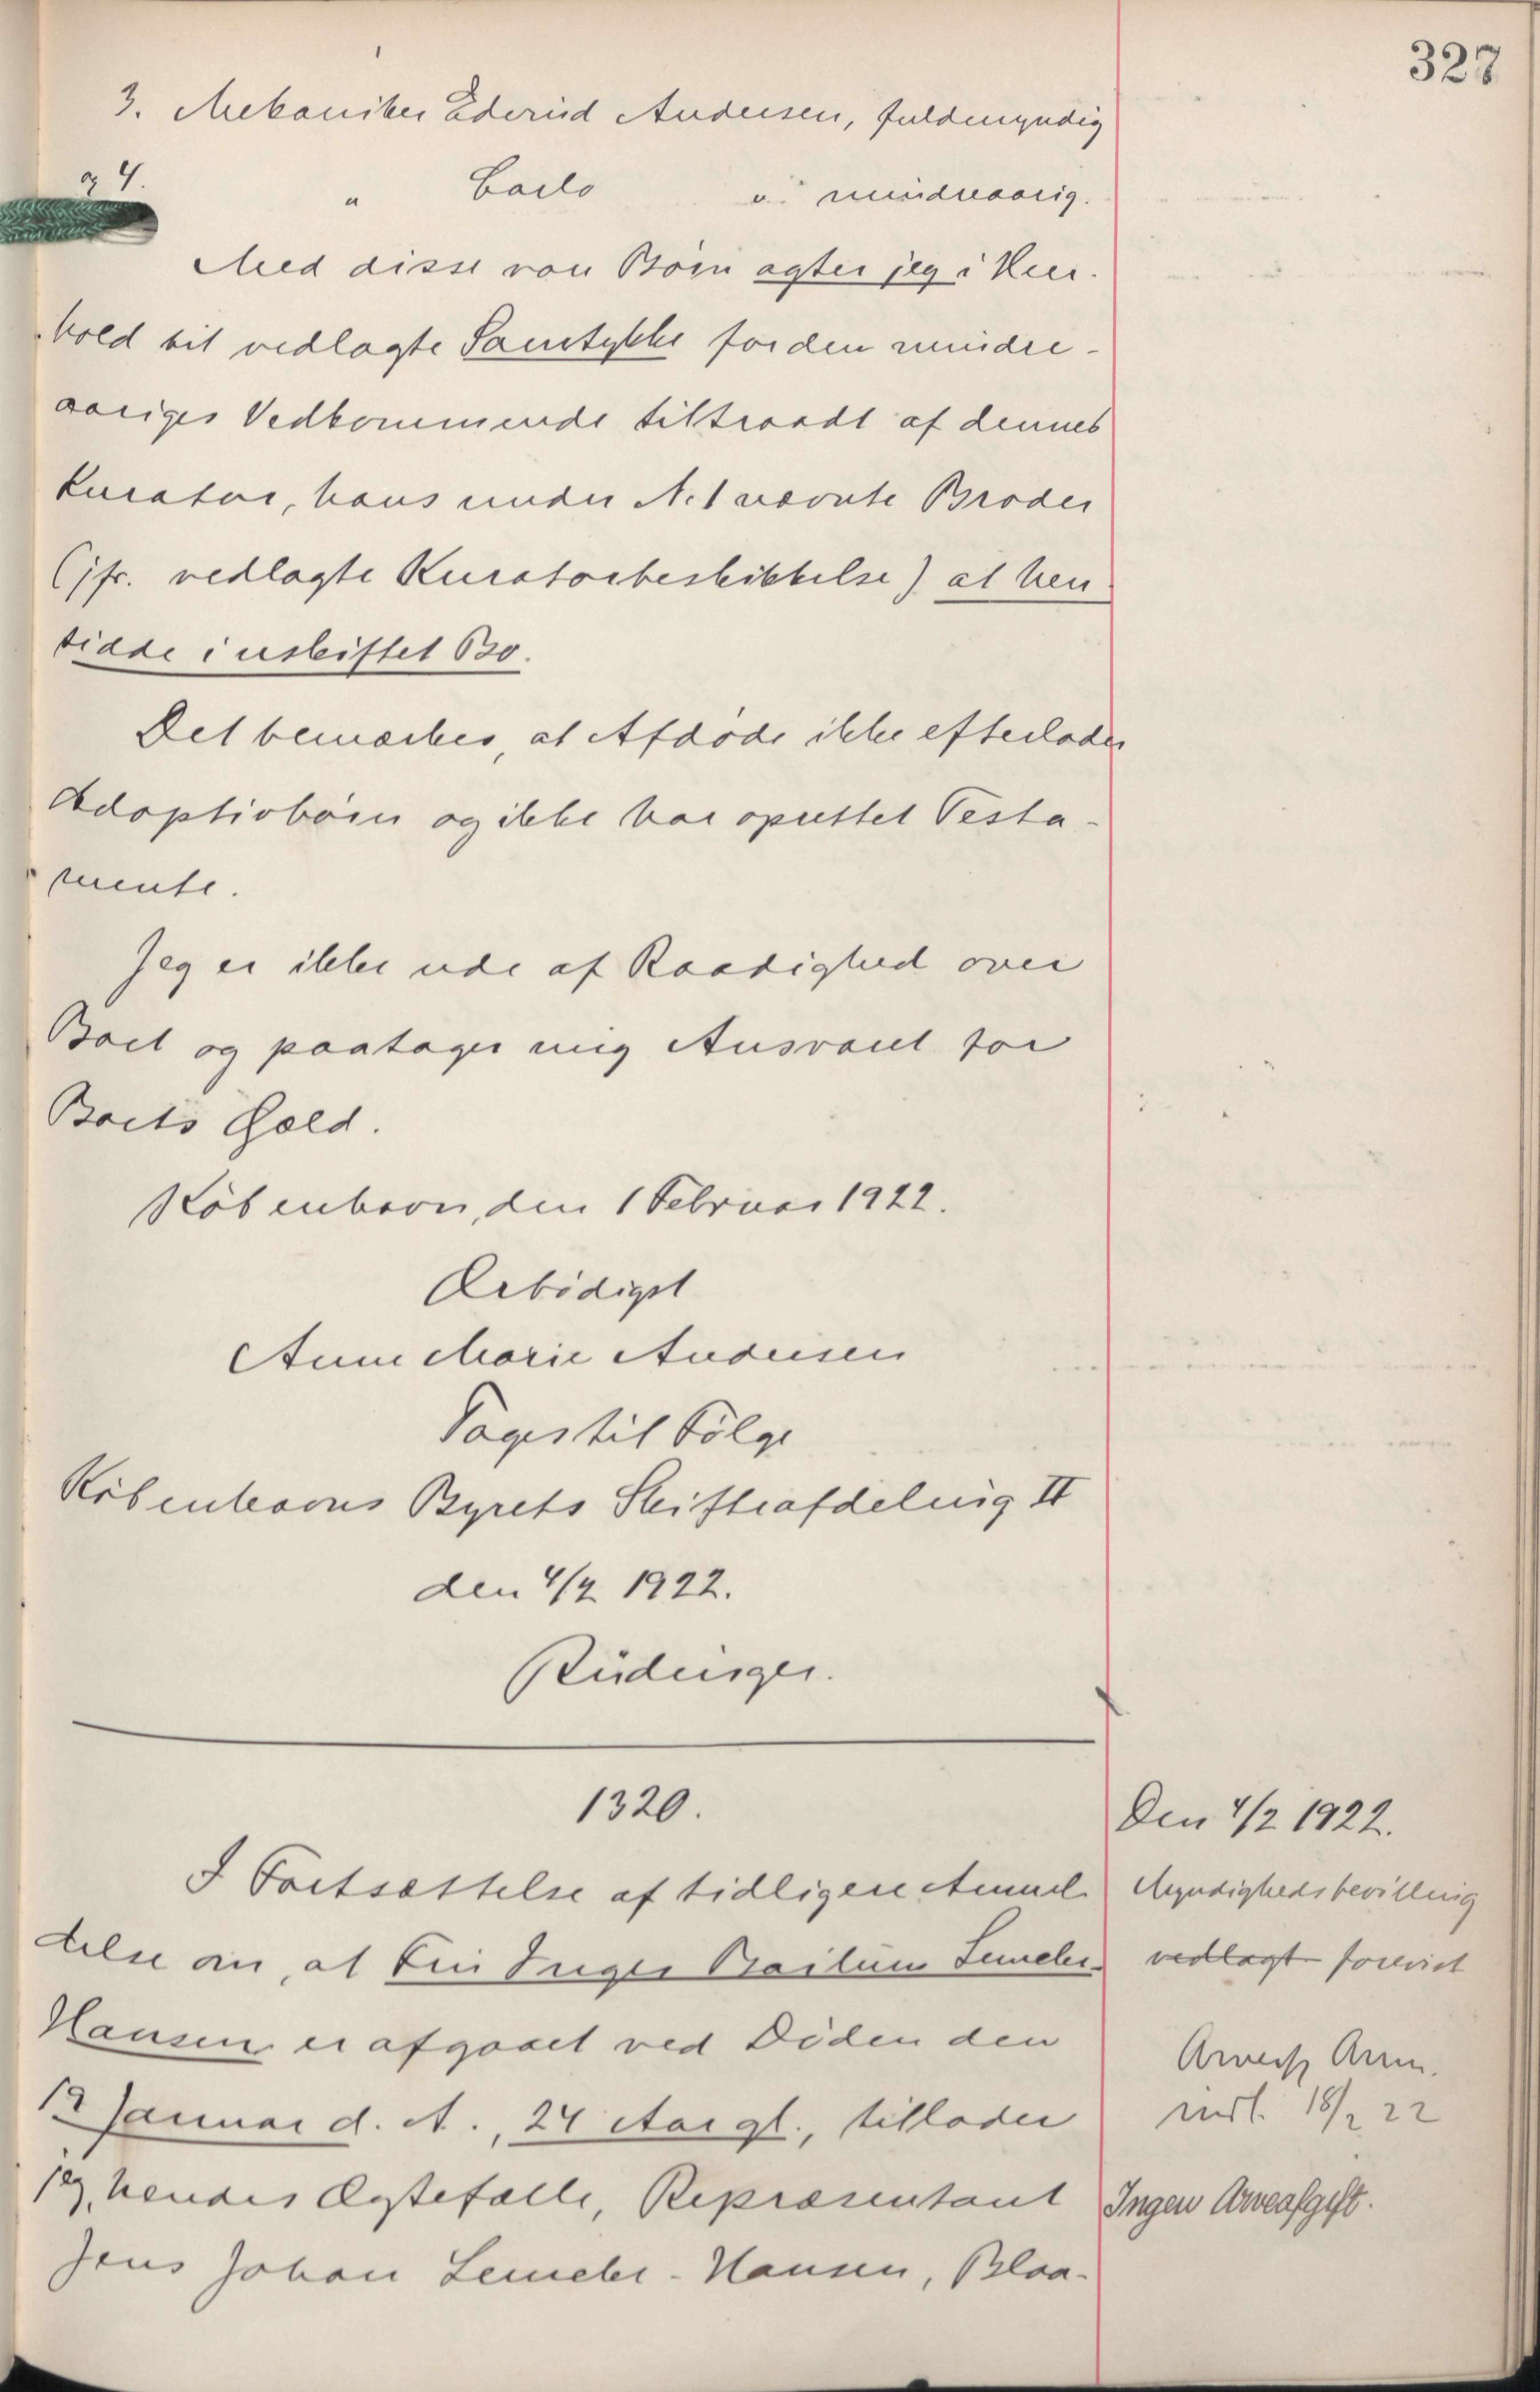 327
3. Mekaniker Edvind Andersen, fuldmyndig
og 4. " Carlo " mindreaarig.
Med disse vor Børn agter jeg i Hen-
hold til vedlagte Samtykke for den mindre-
aariges Vedkommende tiltraadt af dennes
Kurator, hans under No 1 nævnte Broder
(jfr. vedlagte Kuratorbeskikkelse) at hen-
sidde i uskiftet Bo.
Det bemærkes, at Afdøde ikke efterlader
Adoptivbørn og ikke har oprettet Testa-
mente.
Jeg er ikke ude af Raadighed over
Boet og paatager mig Ansvaret for
Boets Gæld.
København, den 1 Februar 1922.
Ærbødigst
Anne Marie Andersen
Tages til Følge
Københavns Byrets Skifteafdeling II
den 4/2 1922.
Rüdinger.
1320.
I Fortsættelse af tidligere Anmel-
delse om, at Inger Lemche-
Hansen er afgaaet ved Døden den
12 Januar d. A., 24 Aar gl., tillader
jeg, hendes Ægtefælle, Repræsentant
Jens Johan Lemche-Hansen, Blaa-
Den 4/2 1922.
Myndighedsbevilling
vedlagt forevist
Anm.
indl. 18/2 22
Ingen Arveafgift.